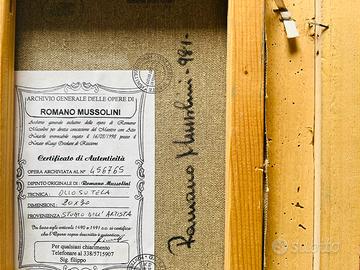 ARCHIVIO GENERALE DELLE OPERE DI
ROMANO MUSSOLINI
Archivio generale esclusivo delle opere di Romano
Mussolini per diretta concessione del Maestro con Atto
Notarile irrevocabile rogato il 16/09/1998 presso il
Notaio Luigi
Certificato di Autenticità
OPERA ARCHIVIATA AL N° 456765
DIPINTO ORIGINALE DI: Romano Mussolini
TECNICA: OLIO SU TELA
DIMENSIONI:
PROVENIENZA STUDIO DELL'ARTISTA
Da base agli articoli 1490 e 1991 c.c. si certifica
che l'Opera sopra descritta è autentica
Per qualsiasi chiarimento
Telefonare al 338/5715907
Sig. filippo
Romano Mussolini - 981 -
subito